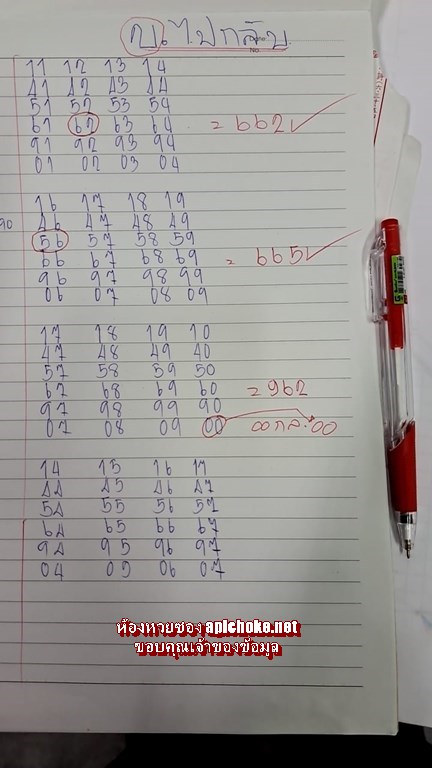 บ.ไปกลับ
11 12 13 14
41 42 43 44
51 52 53 54
61 62 63 64 = 662
91 92 93 94
01 02 03 04
16 17 18 19
90 46 47 48 49
56 57 58 59
66 67 68 69 = 665
96 97 98 99
06 07 08 09
17 18 19 10
47 48 49 40
57 58 59 50
67 68 69 60 = 962
97 98 99 90
07 08 09 00 00 กล: 00
14 15 16 17
44 45 46 47
54 55 56 57
64 65 66 67
94 95 96 97
04 05 06 07
ห้องหวยซอง apichoke.net
ขอบคุณเจ้าของข้อมูล